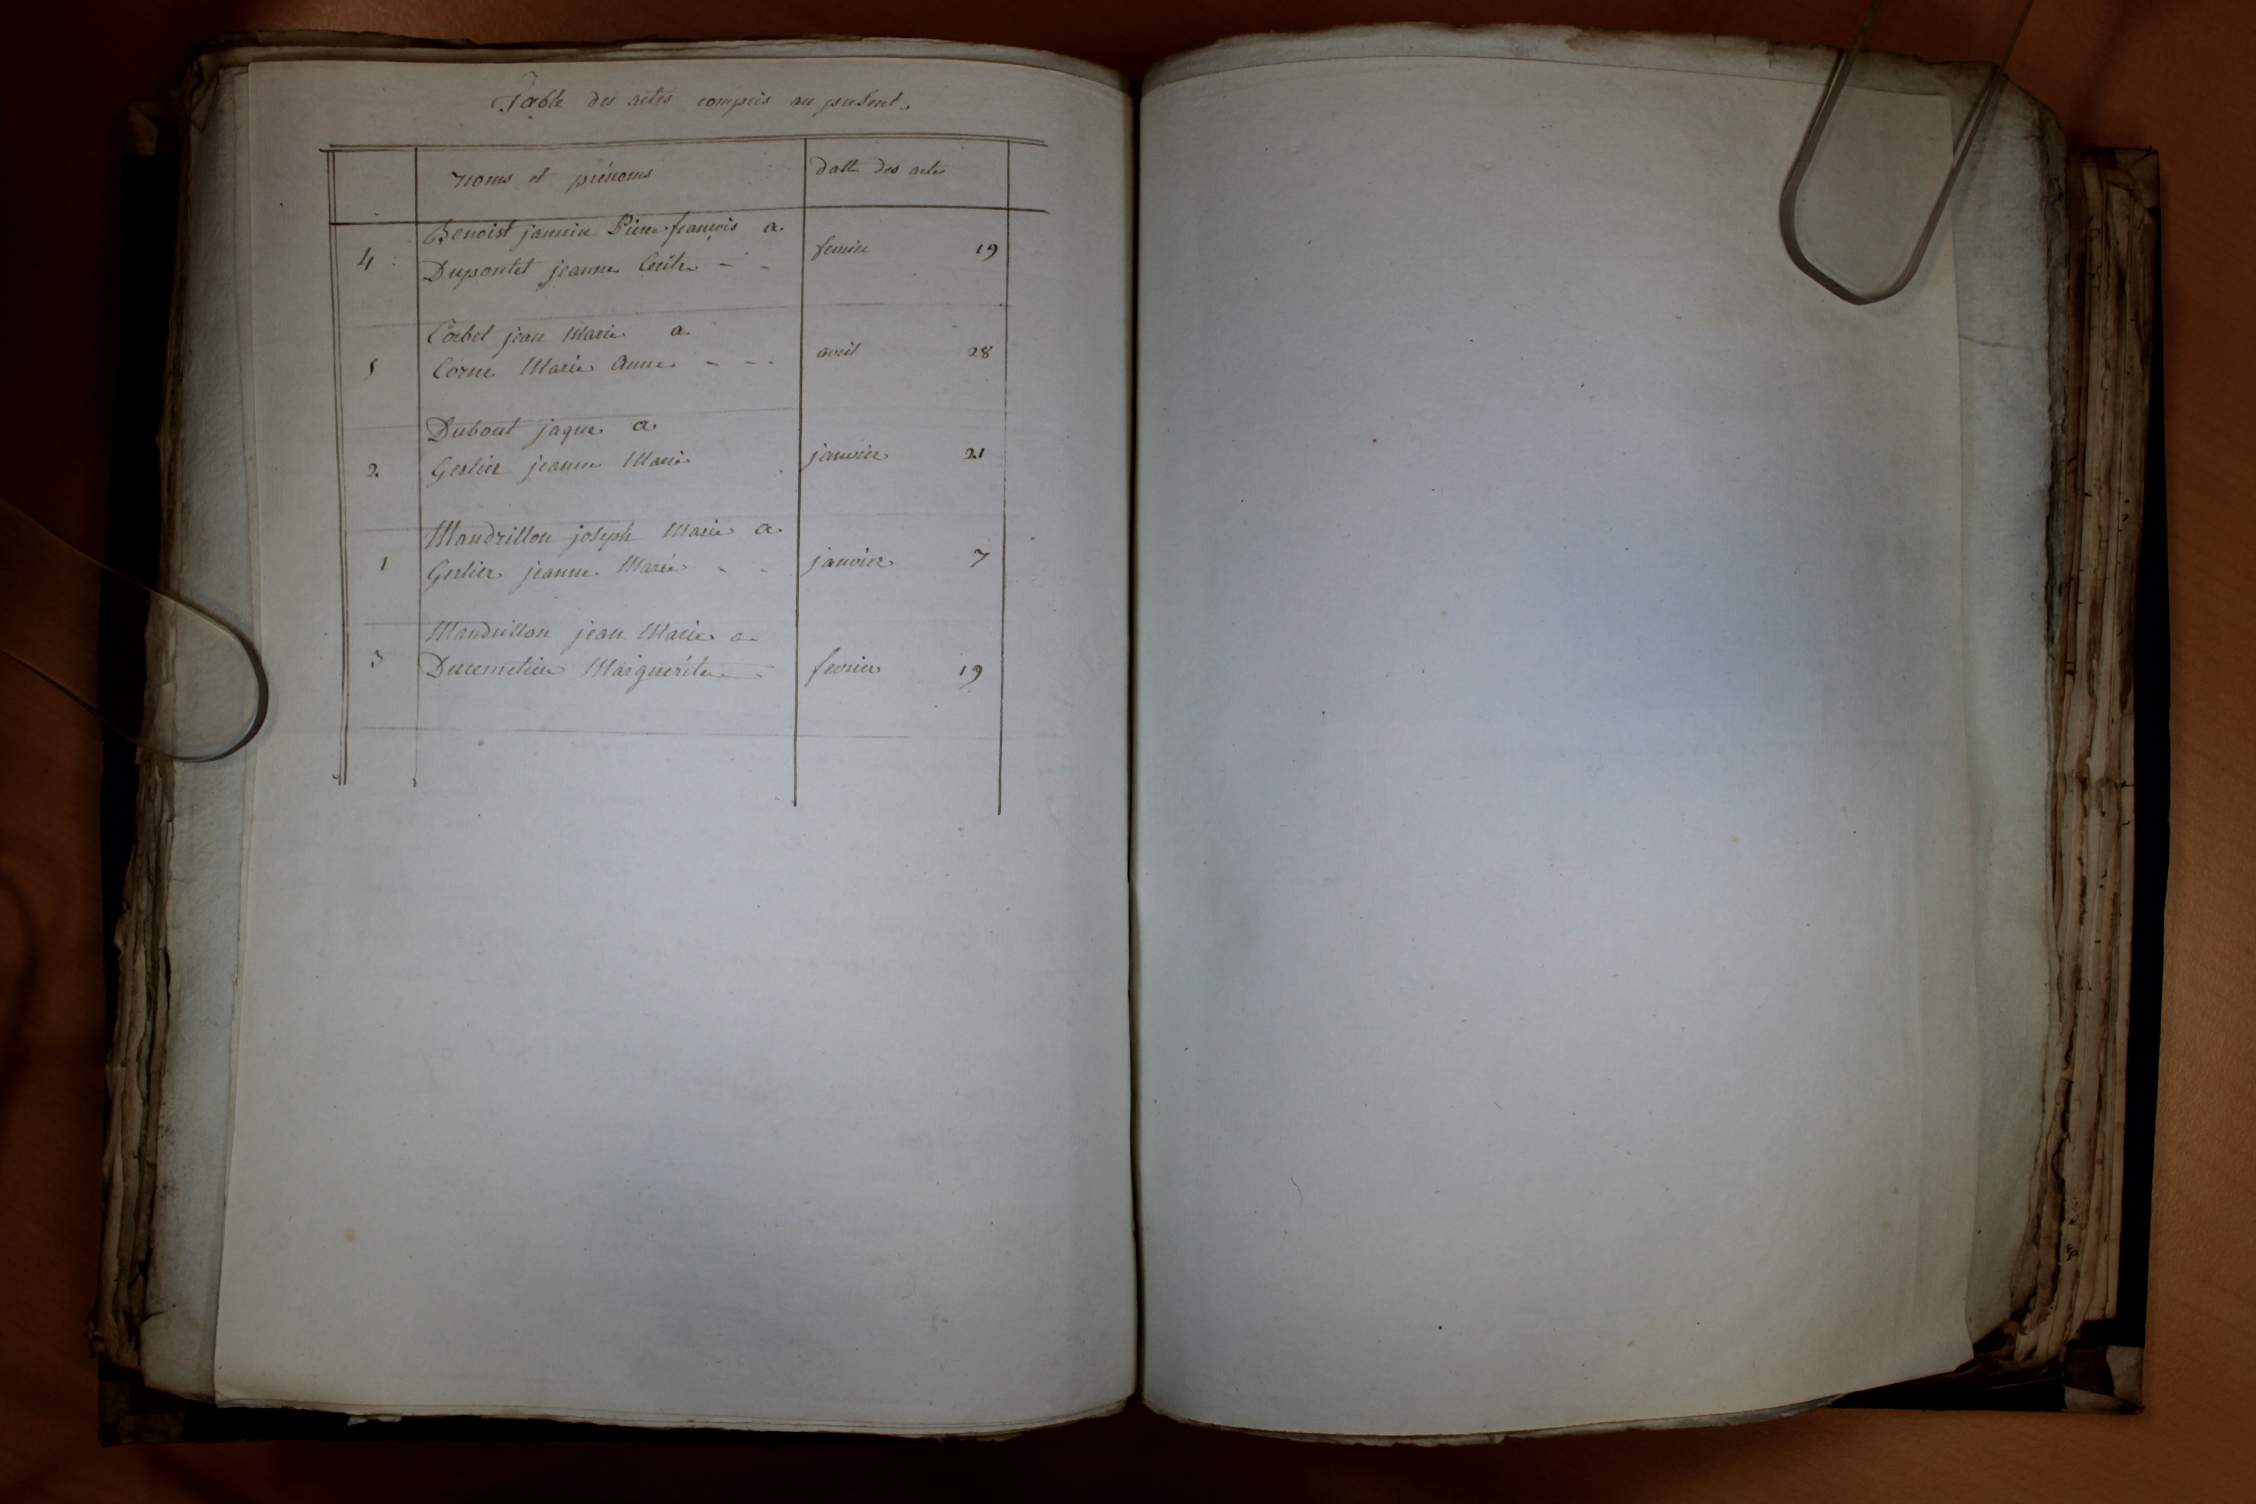 Table des actes compris au présent.
noms et prénoms
datte des actes
Benoist jannin Pierre françois a
4
fevrier 19
Dupontet jeanne Cecile - -
Corbet jean Marie a
5
avril 28
Corne Marie Anne - - -
Dubout jaque a
2
janvier 21
Gerlier jeanne Marie
Mandrillon joseph Marie a
1
janvier 7
Gerlier jeanne Marie - -
Mandrillon jean Marie a
3
fevrier 19
Marguerite